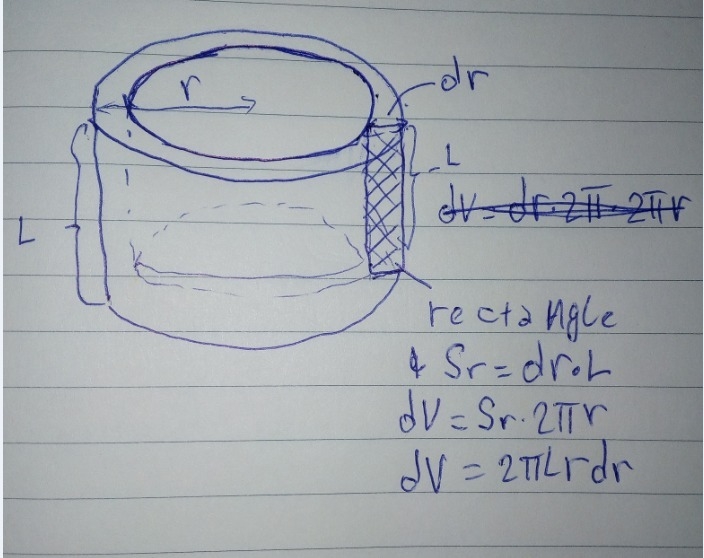 r
dr
L
L
dV = dr·2π·2πr
rectangle
Sr = dr·L
dV = Sr·2πr
dV = 2πLrdr